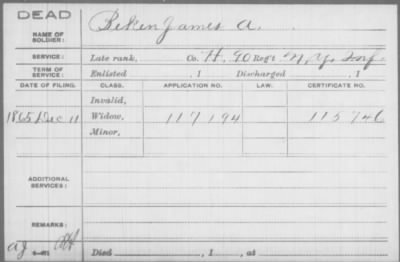 DEAD
NAME OF SOLDIER: Beken James A.
SERVICE: Late rank, Co. H, 90 Reg't N.Y. Inf.
TERM OF SERVICE: Enlisted , 1 Discharged , 1
DATE OF FILING. CLASS. APPLICATION NO. LAW. CERTIFICATE NO.
Invalid,
1865 Dec 11 Widow, 117194 115746
Minor,
ADDITIONAL SERVICES:
REMARKS:
Died , 1 , at